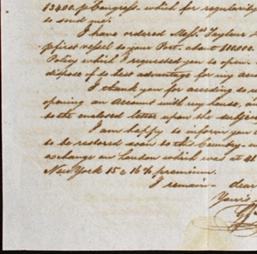 13400 p Congress - which for regularity
to send you.
I have ordered Messrs. Taylors
p first vessel to your Port - about $10000
Policy which I requested you to open.
dispose of to best advantage for my acc
I thank you for acceding to
opening an Account with my house, an
to the enclosed letter upon the subject
I am happy to inform you
to be restored soon to this Country - an
exchange on London which was at
New York 15 a 16 % premium.
I remain - dear
Yours